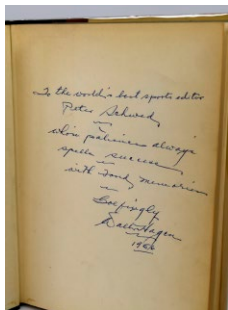 To the world's best sports editor
Peter Schwed
whos patience always
spells success
with fond memories
Golfingly
Walter Hagen
1956